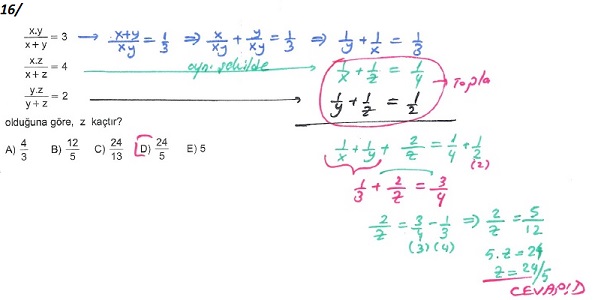 16/
x.y/x+y = 3 → x+y/xy = 1/3 ⇒ x/xy + y/xy = 1/3 ⇒ 1/y + 1/x = 1/3
x.z/x+z = 4 aynı şekilde → 1/x + 1/z = 1/4
y.z/y+z = 2 → 1/y + 1/z = 1/2 → Topla
olduğuna göre, z kaçtır?
A) 4/3 B) 12/5 C) 24/13 D) 24/5 E) 5
1/x + 1/y + 2/z = 1/4 + 1/2
(2)
1/3 + 2/z = 3/4
2/z = 3/4 - 1/3 ⇒ 2/z = 5/12
(3) (4)
5.z = 24
z = 24/5
CEVAP: D